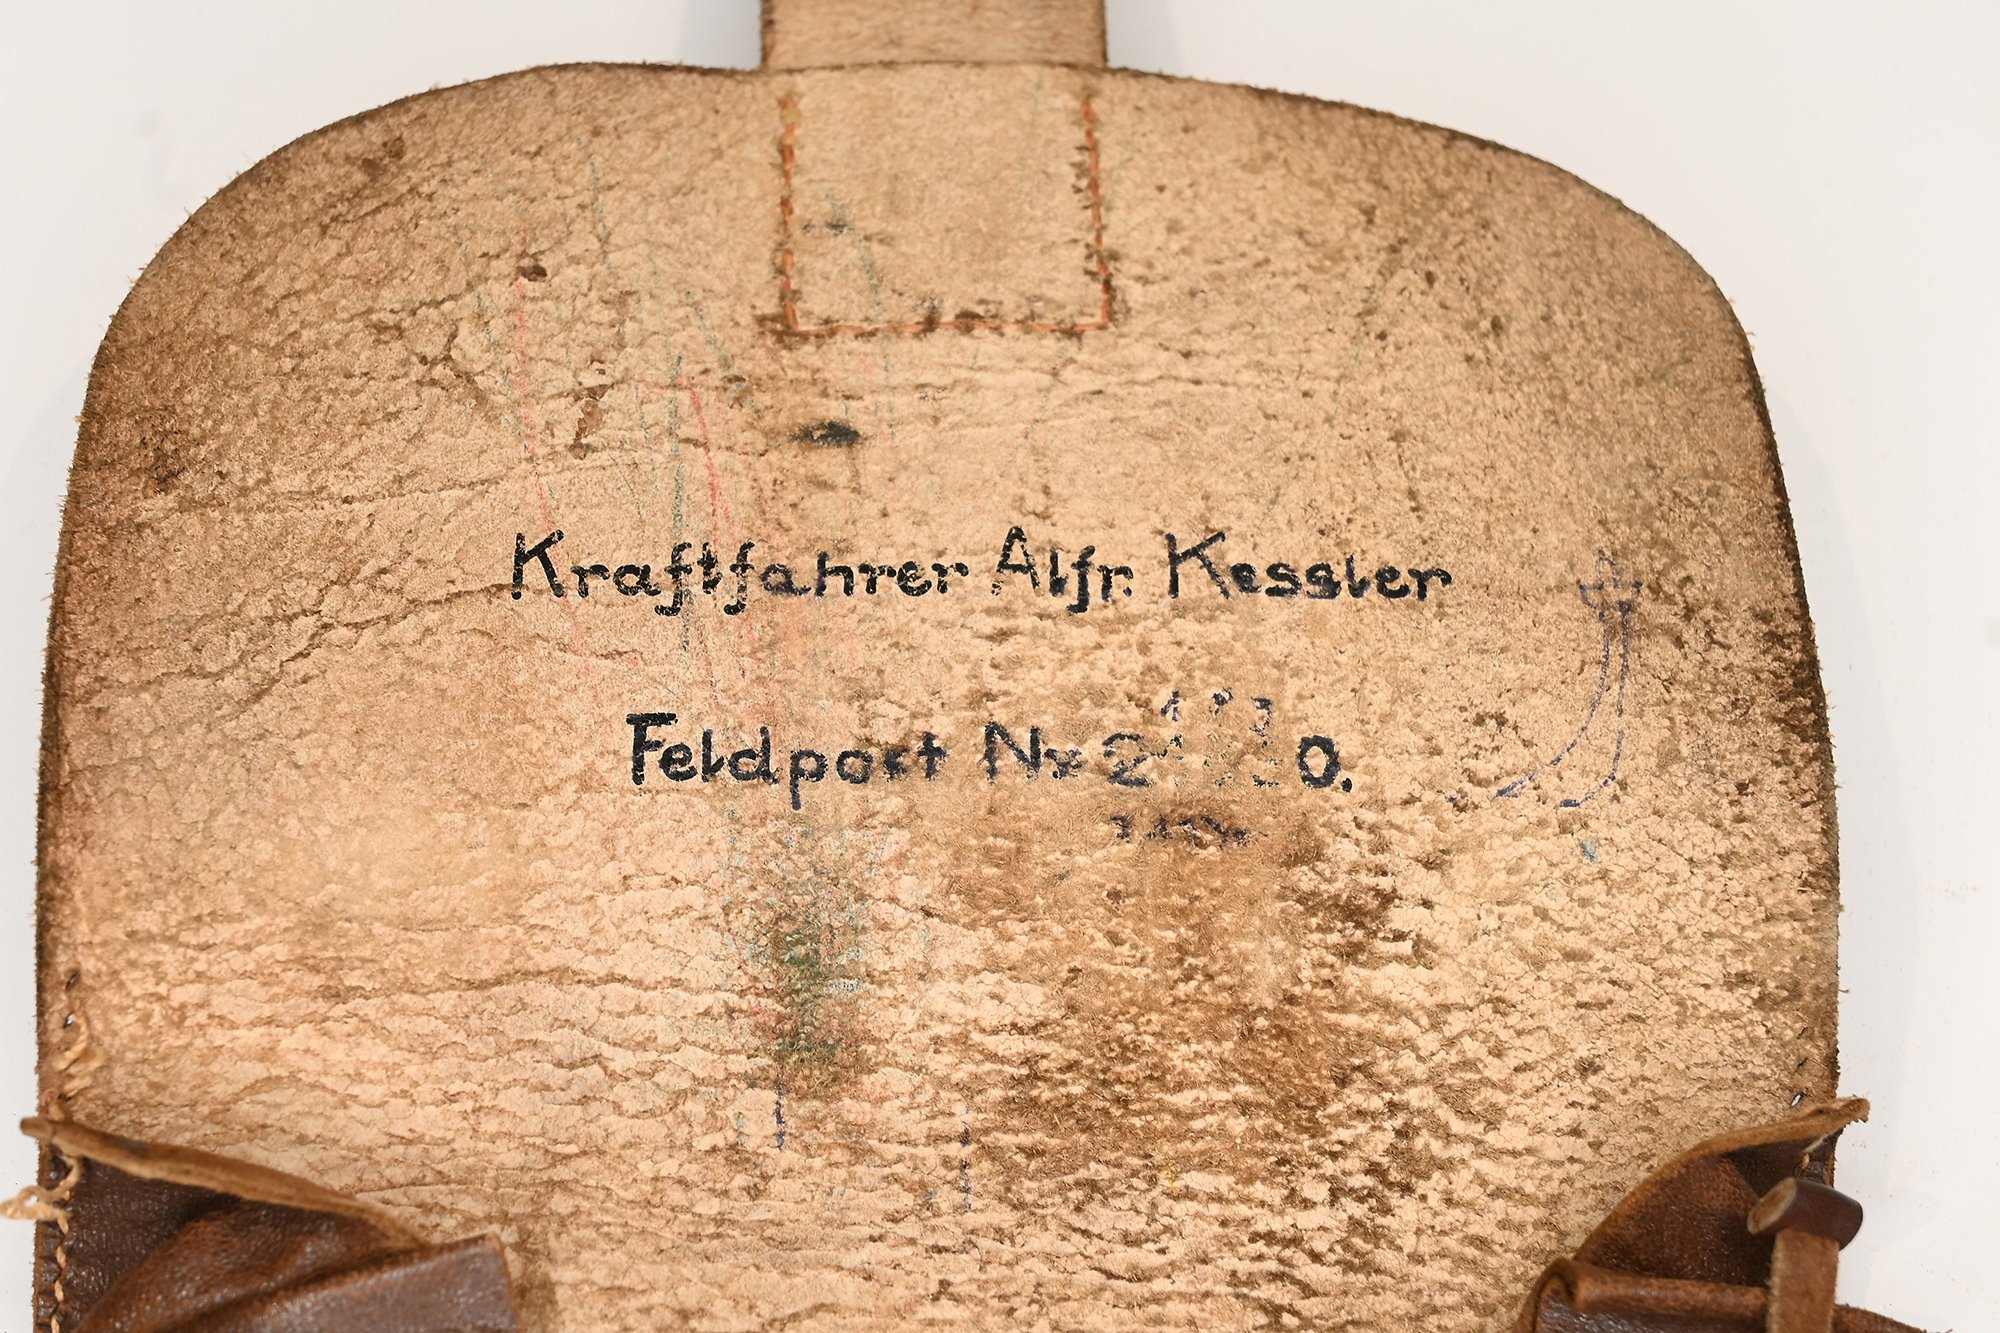 Kraftfahrer Alfr. Kessler
Feldpost Nr